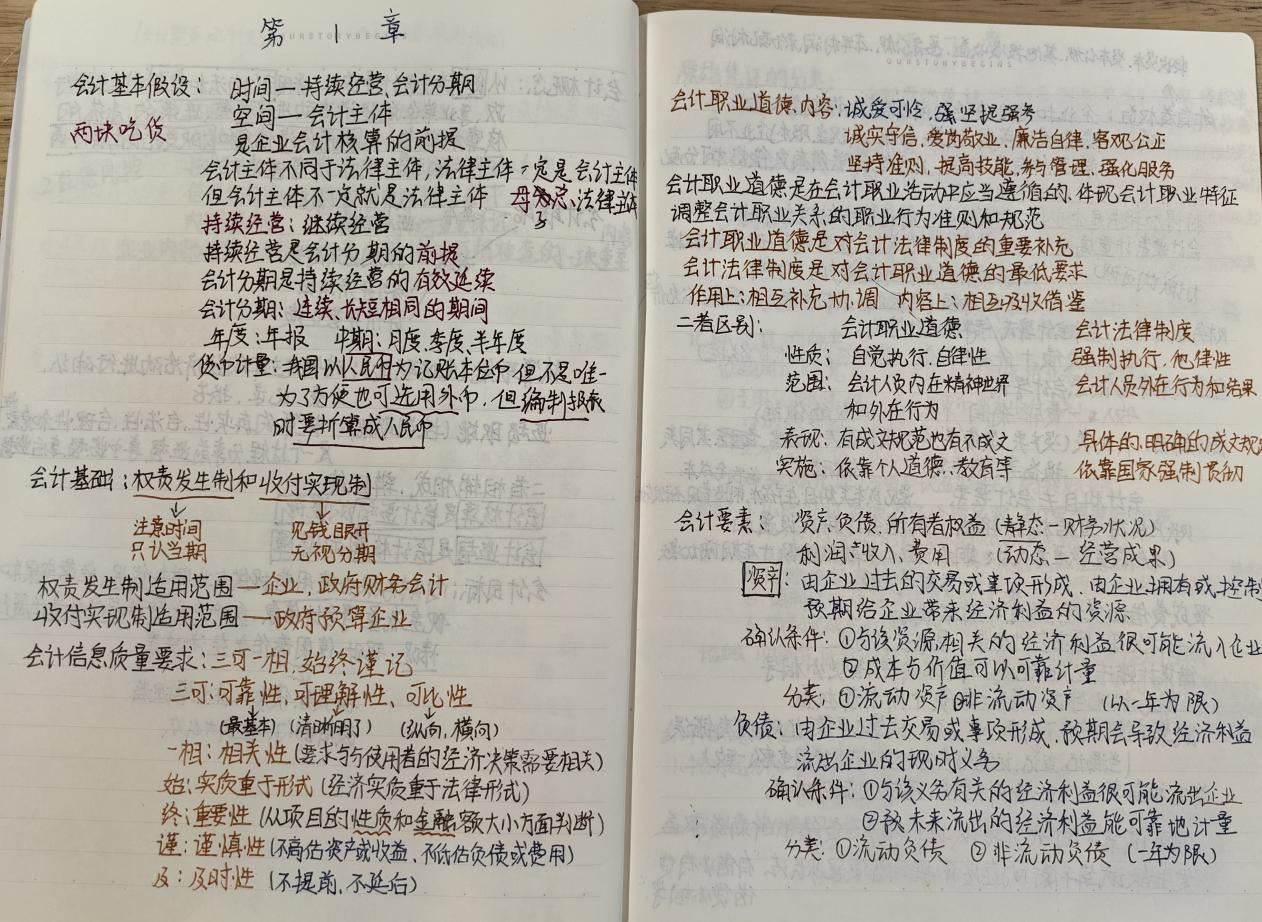 第 1 章
会计基本假设: 时间—持续经营、会计分期
两块吃货 空间—会计主体
是企业会计核算的前提
会计主体不同于法律主体, 法律主体一定是会计主体
但会计主体不一定就是法律主体 母 子 法律主体
持续经营: 继续经营
持续经营是会计分期的前提
会计分期是持续经营的有效延续
会计分期: 连续、长短相同的期间
年度: 年报 中期: 月度、季度、半年度
货币计量: 我国以人民币为记账本位币, 但不是唯一
为了方便也可选用外币, 但编制报表
时要折算成人民币
会计基础: 权责发生制和收付实现制
注意时间 见钱眼开
只认当期 无视分期
权责发生制适用范围—企业, 政府财务会计
收付实现制适用范围—政府预算企业
会计信息质量要求: 三可一相, 始终谨记
三可: 可靠性, 可理解性、可比性
(最基本) (清晰明了) (纵向, 横向)
一相: 相关性 (要求与使用者的经济决策需要相关)
始: 实质重于形式 (经济实质重于法律形式)
终: 重要性 (从项目的性质和金融额大小方面判断)
谨: 谨慎性 (不高估资产或收益、不低估负债或费用)
及: 及时性 (不提前, 不延后)
OURSTORYBEGINS
会计职业道德内容: 诚爱可怜, 强坚提强考
诚实守信, 爱岗敬业, 廉告自律, 客观公正
坚持准则, 提高技能, 参与管理, 强化服务
会计职业道德是在会计职业活动中应当遵循的、体现会计职业特征
调整会计职业关系的职业行为准则和规范
会计职业道德是对会计法律制度的重要补充
会计法律制度是对会计职业道德的最低要求
作用上: 相互补充协调 内容上: 相互吸收借鉴
二者区别: 会计职业道德 会计法律制度
性质: 自觉执行, 自律性 强制执行, 他律性
范围: 会计人员内在精神世界 会计人员外在行为和结果
和外在行为
表现: 有成文规范也有不成文 具体的, 明确的成文规
实施: 依靠个人道德、教育等 依靠国家强制贯彻
会计要素: 资产、负债、所有者权益 (静态—财务状况)
利润、收入、费用 (动态—经营成果)
资产: 由企业过去的交易或事项形成、由企业拥有或控制
预期给企业带来经济利益的资源
确认条件: ①与该资源相关的经济利益很可能流入企业
②成本与价值可以可靠计量
分类: ①流动资产②非流动资产 (以一年为限)
负债: 由企业过去交易或事项形成、预期会导致经济利益
流出企业的现时义务
确认条件: ①与该义务有关的经济利益很可能流出企业
②预未来流出的经济利益能可靠地计量
分类: ①流动负债 ②非流动负债 (一年为限)